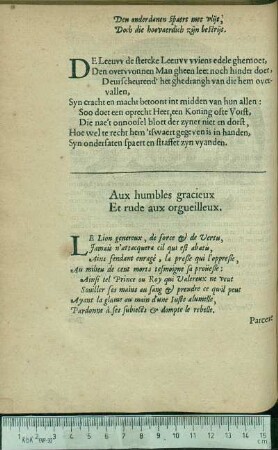 Den onderdanen spaert uwe vlijt,
Doch die hoevaerdich zijn bestrijt.
DE Leeuvv de stercke Leeuvv vviens edele ghemoet,
Den overvvonnen Man gheen leet noch hinder doet,
Deurscheurend' het ghedrangh van die hem over-
vallen,
Syn cracht en macht betoont int midden van hun allen:
Soo doet een oprecht Heer, een Koning ofte Vorst,
Die nae't onnoosel bloet der zyner niet en dorst,
Hoe wel te recht hem 'tswaert gegeven is in handen,
Syn ondersaten spaert en straffet zyn vyanden.
Aux humbles gracieux
Et rude aux orgueilleux.
LE Lion genereux, de force & de Vertu,
Jamais n'attacquera cil qui est abatu,
Ains fendant enragé, la presse qui l'oppresse,
Au milieu de cent morts tesmoigne sa prouesse:
Ainsi tel Prince ou Roy qui Valereux ne veut
Souiller ses mains au sang & prendre ce qu'il peut
Ayant la glaive au main d'une Iuste
Pardonne à ses subiects & dompte le rebelle.
Parcere
cm 1 2 3 4 5 6 7 8 9 10 11 12 13 14 15